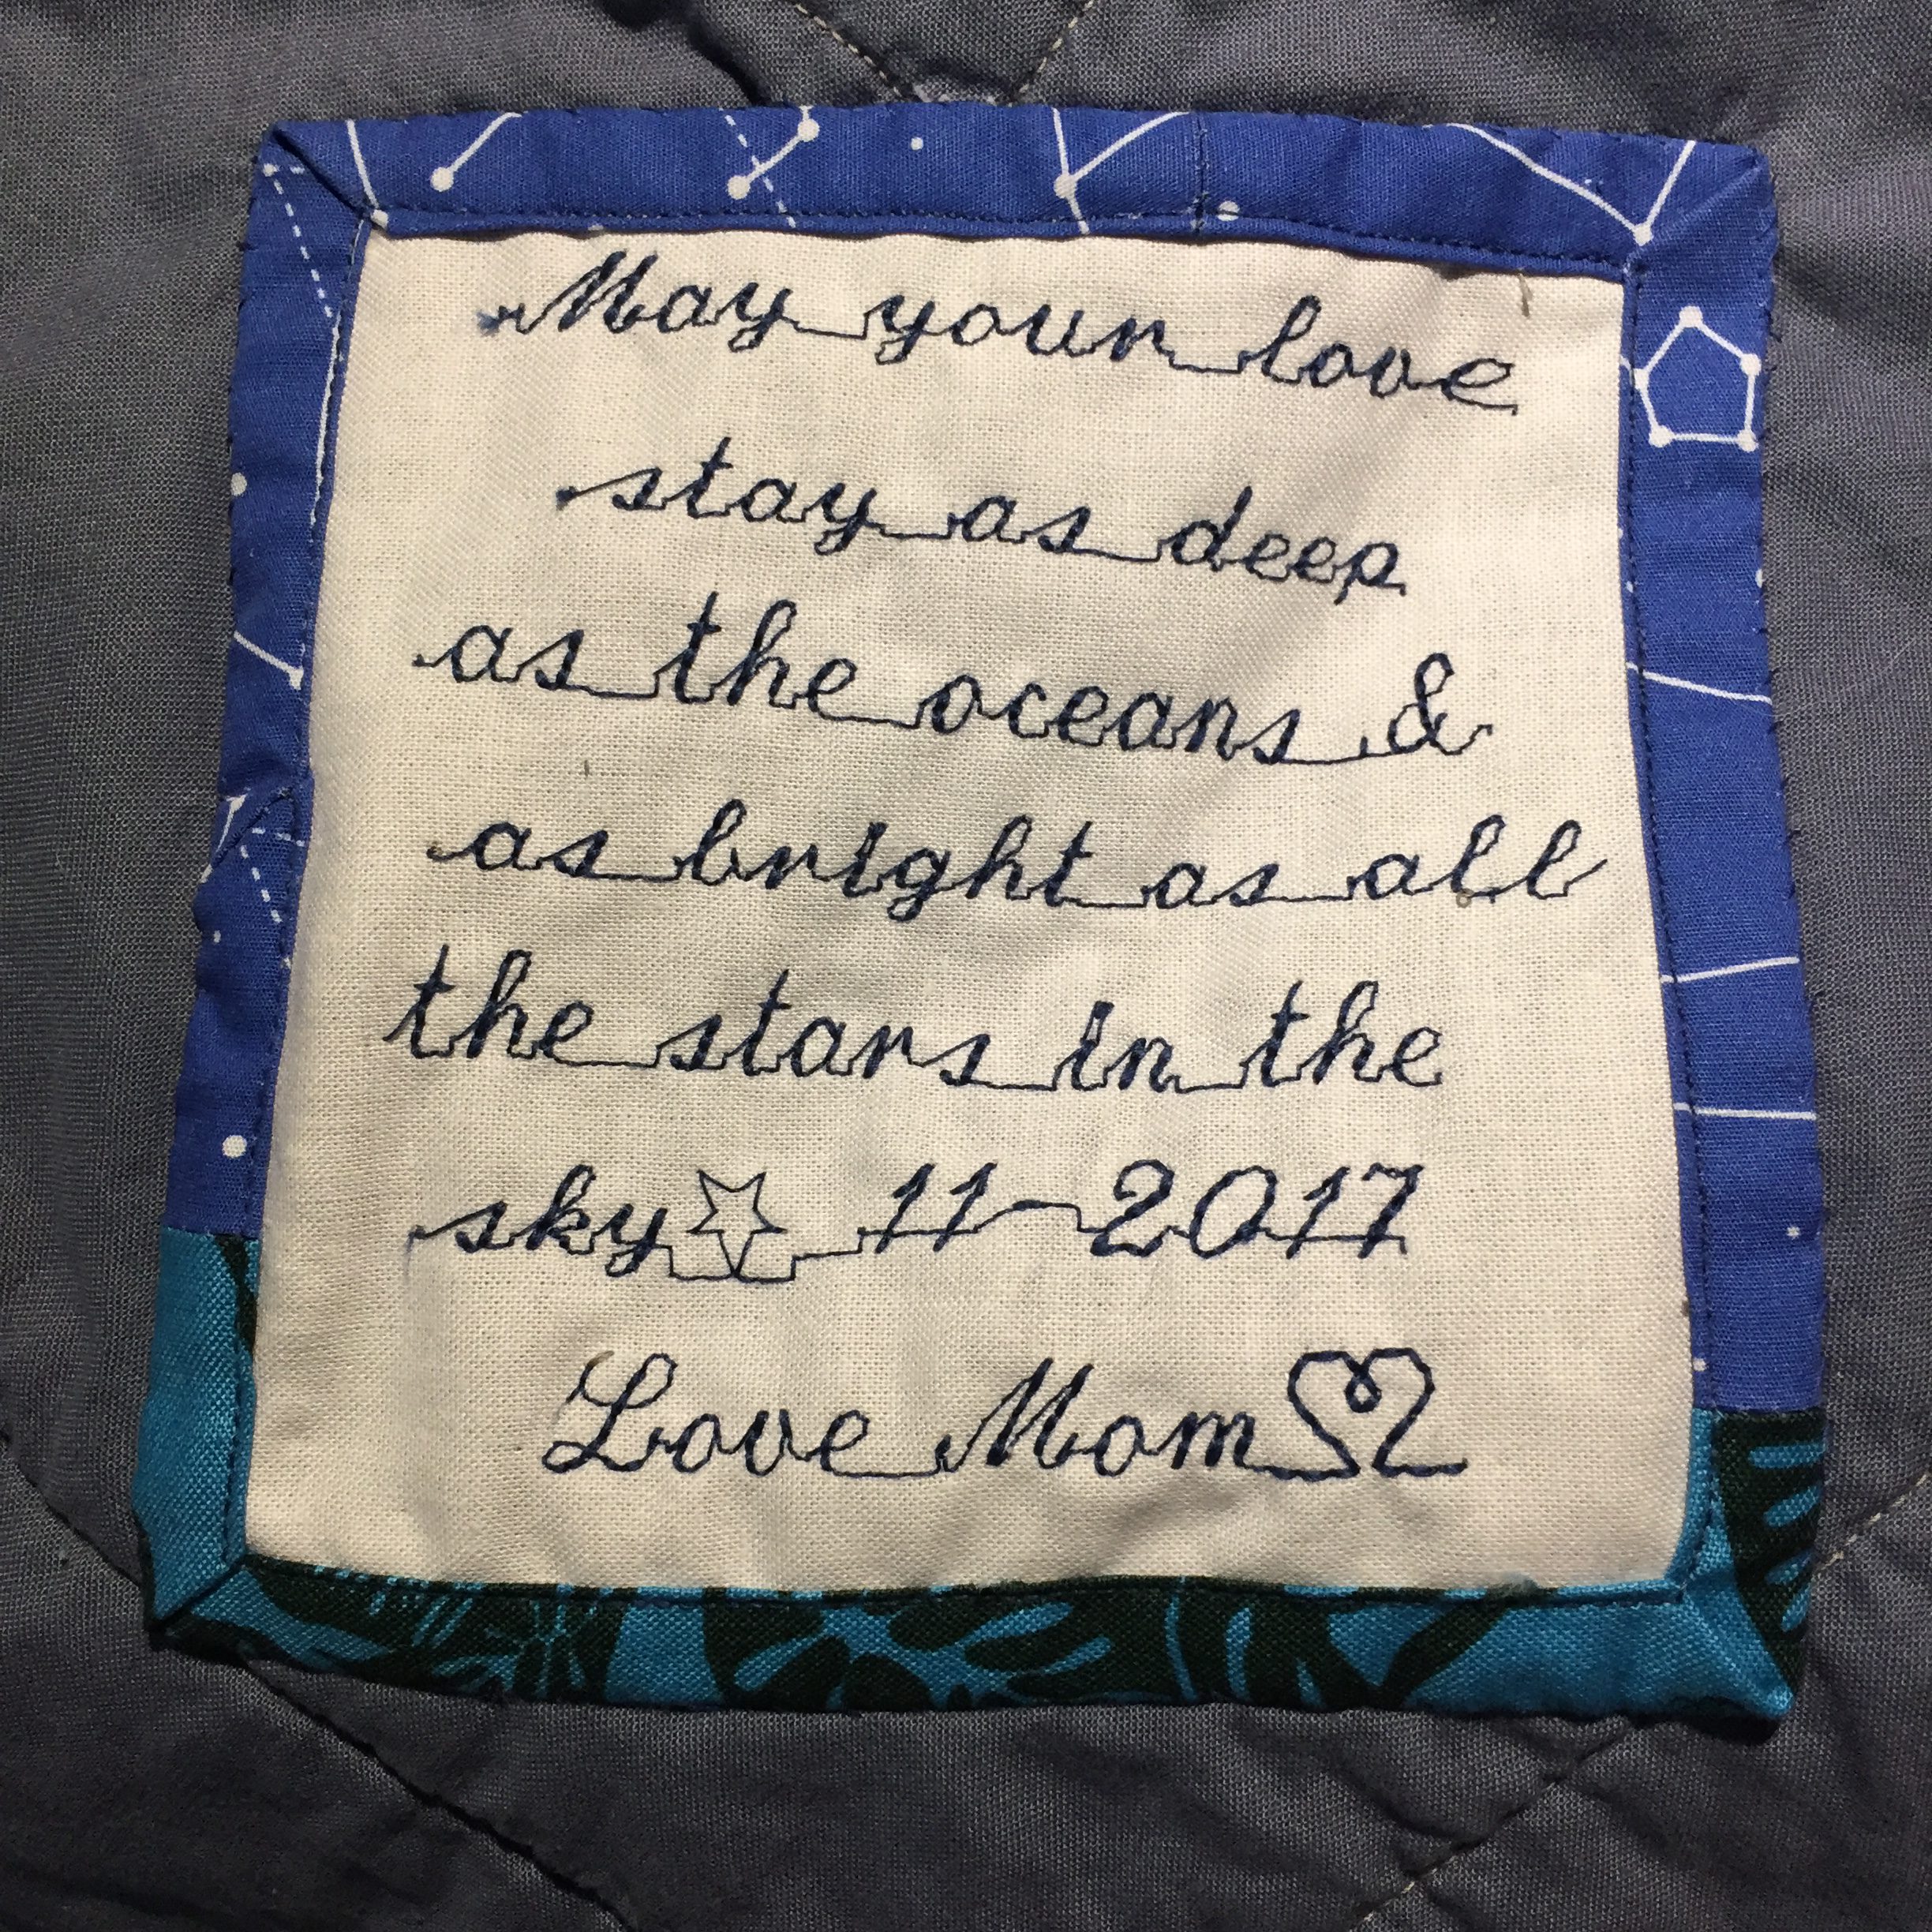 May your love
stay as deep
as the oceans &
as bright as all
the stars in the
sky☆ 11-2017
Love Mom♡